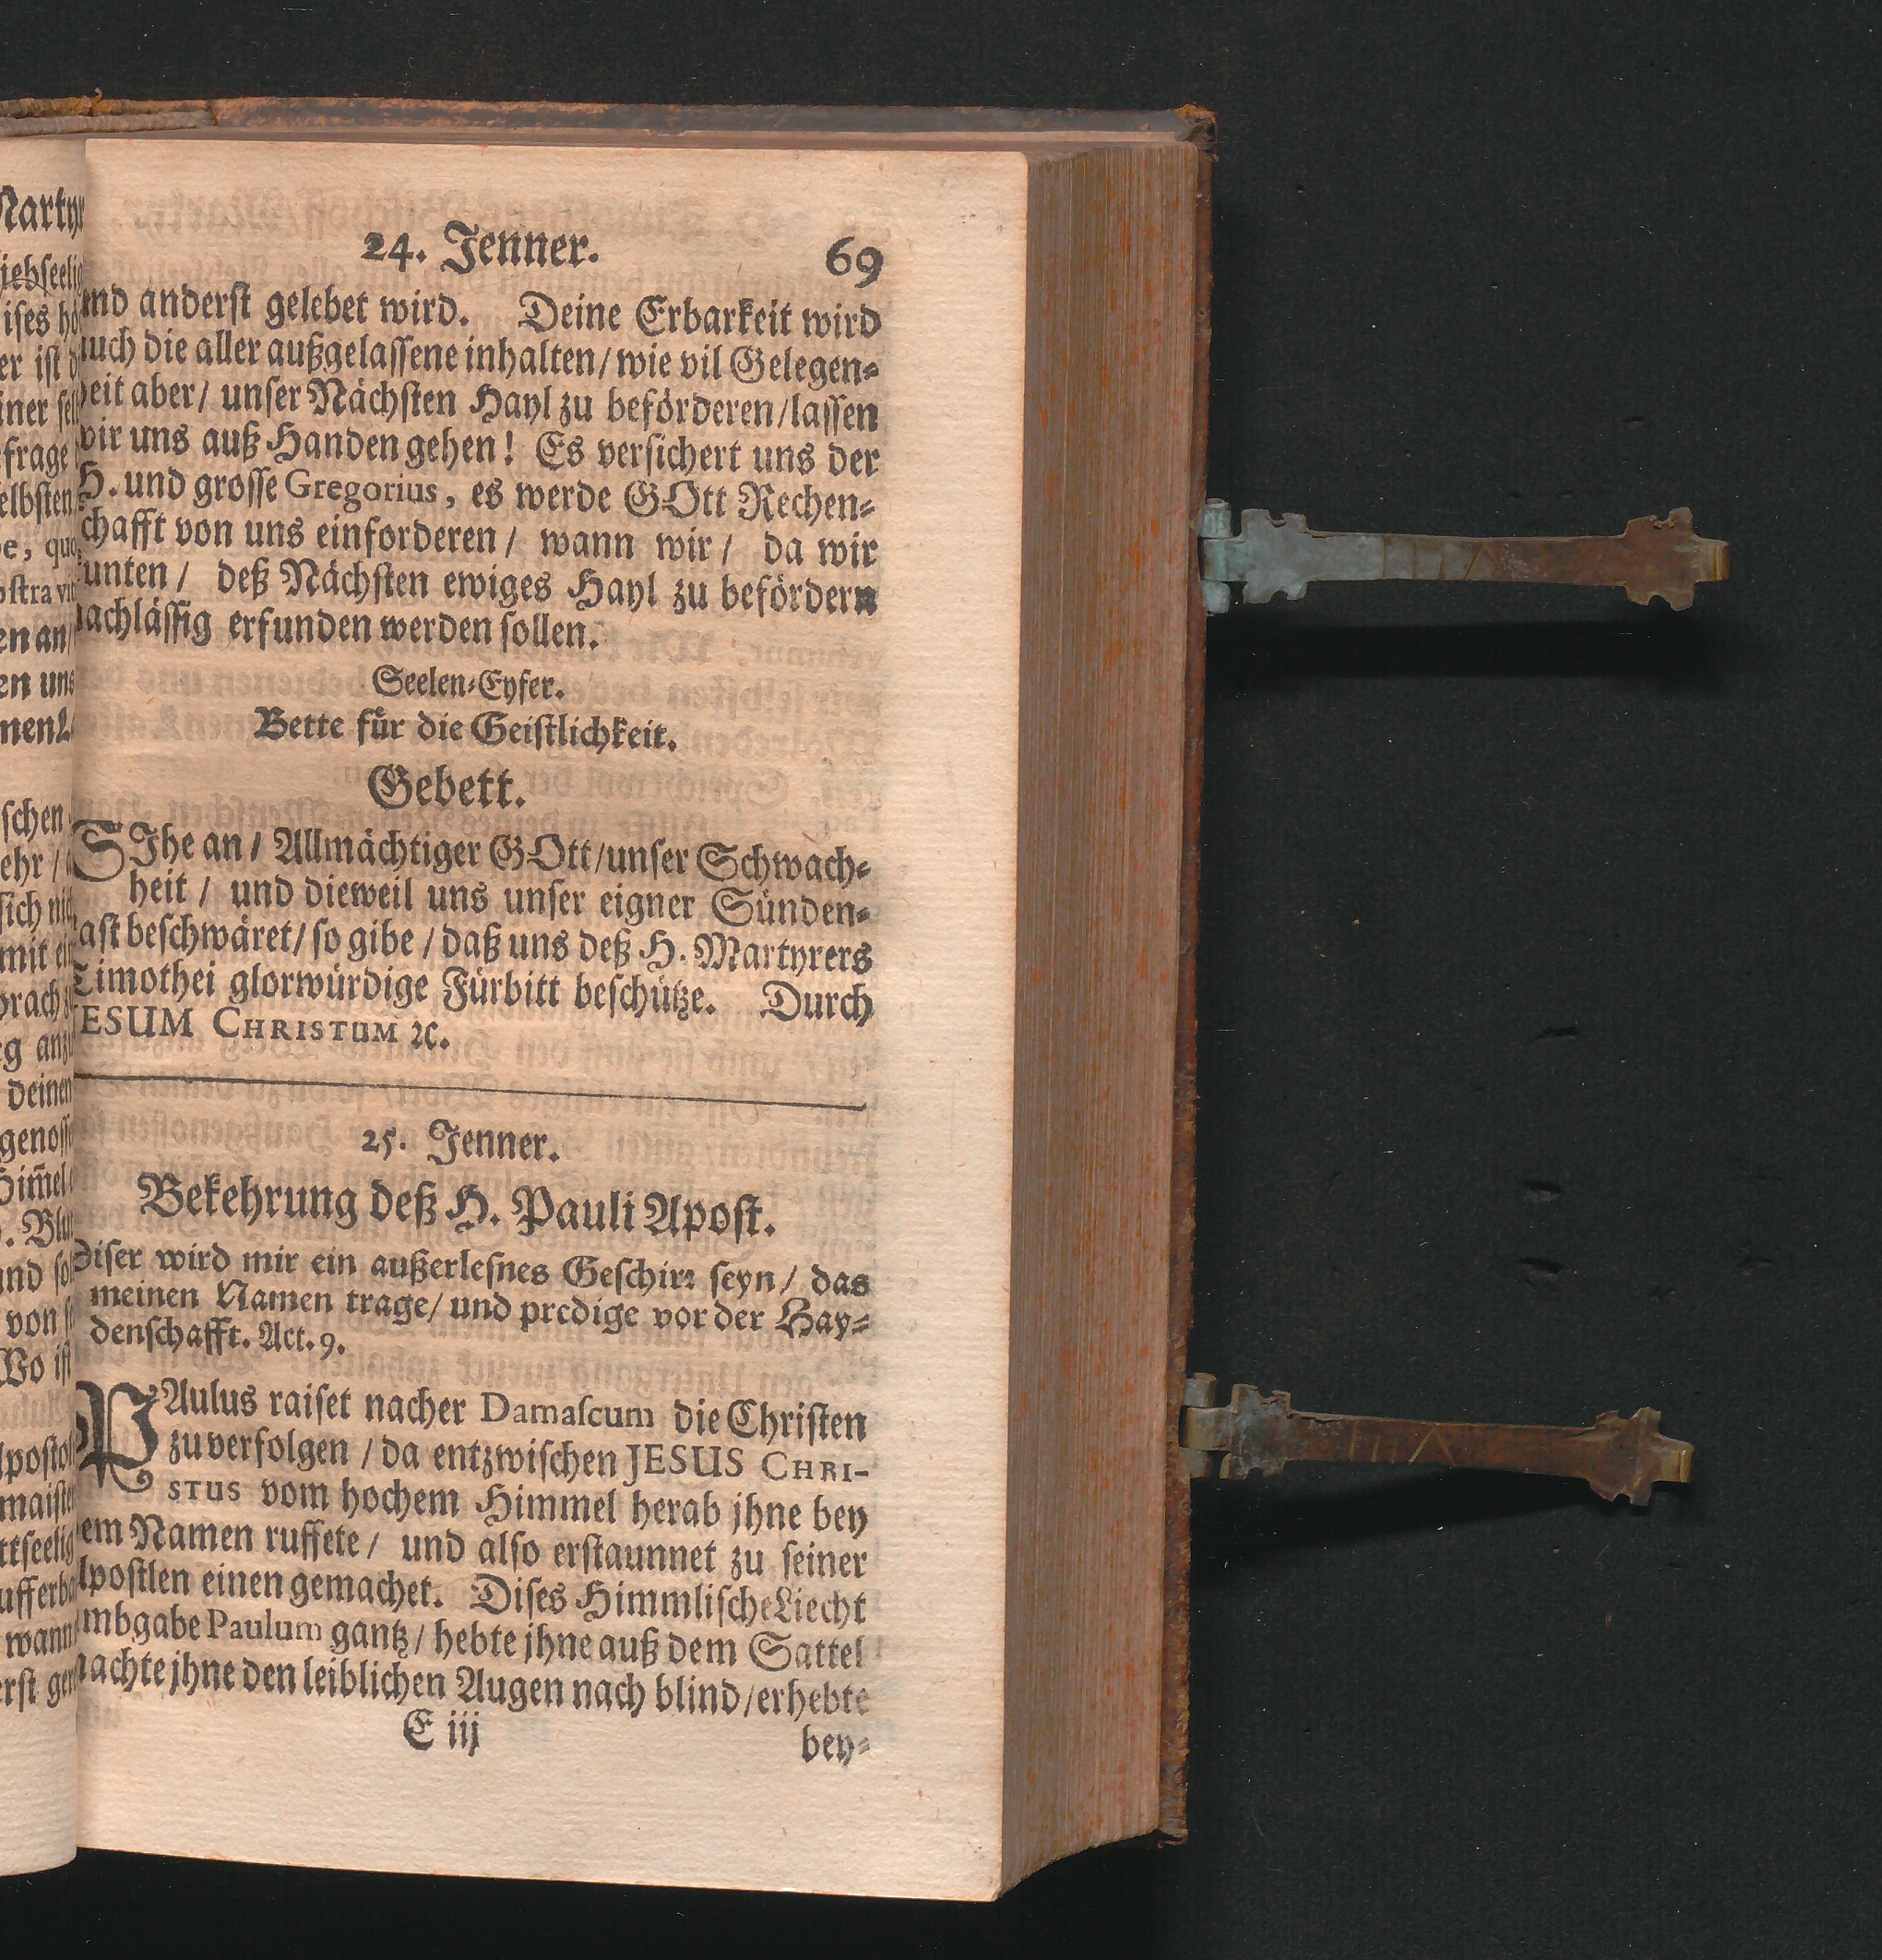 24. Jenner. 69
und anderst gelebet wird. Deine Erbarkeit wird
auch die aller außgelassene inhalten/ wie vil Gelegen-
heit aber/ unser Nächsten Hayl zu beförderen/ lassen
wir uns auß Handen gehen! Es versichert uns der
H. und grosse Gregorius, es werde GOtt Rechen-
schafft von uns einforderen/ wann wir/ da wir
kunten/ deß Nächsten ewiges Hayl zu befördern
nachlässig erfunden werden sollen.
Seelen-Eyfer.
Bette für die Geistlichkeit.
Gebett.
SIhe an/ Allmächtiger GOtt/ unser Schwach-
heit/ und dieweil uns unser eigner Sünden-
last beschwäret/ so gibe/ daß uns deß H. Martyrers
Timothei glorwürdige Fürbitt beschütze. Durch
JESUM CHRISTUM ꝛc.
25. Jenner.
Bekehrung deß H. Pauli Apost.
Diser wird mir ein außerlesnes Geschirr seyn/ das
meinen Namen trage/ und predige vor der Hay-
denschafft. Act. 9.
PAulus raiset nacher Damascum die Christen
zuverfolgen/ da entzwischen JESUS CHRI-
STUS vom hochem Himmel herab jhne bey
dem Namen ruffete/ und also erstaunnet zu seiner
Apostlen einen gemachet. Dises Himmlische Liecht
umbgabe Paulum gantz/ hebte jhne auß dem Sattel
machte jhne den leiblichen Augen nach blind/ erhebte
E iij bey-